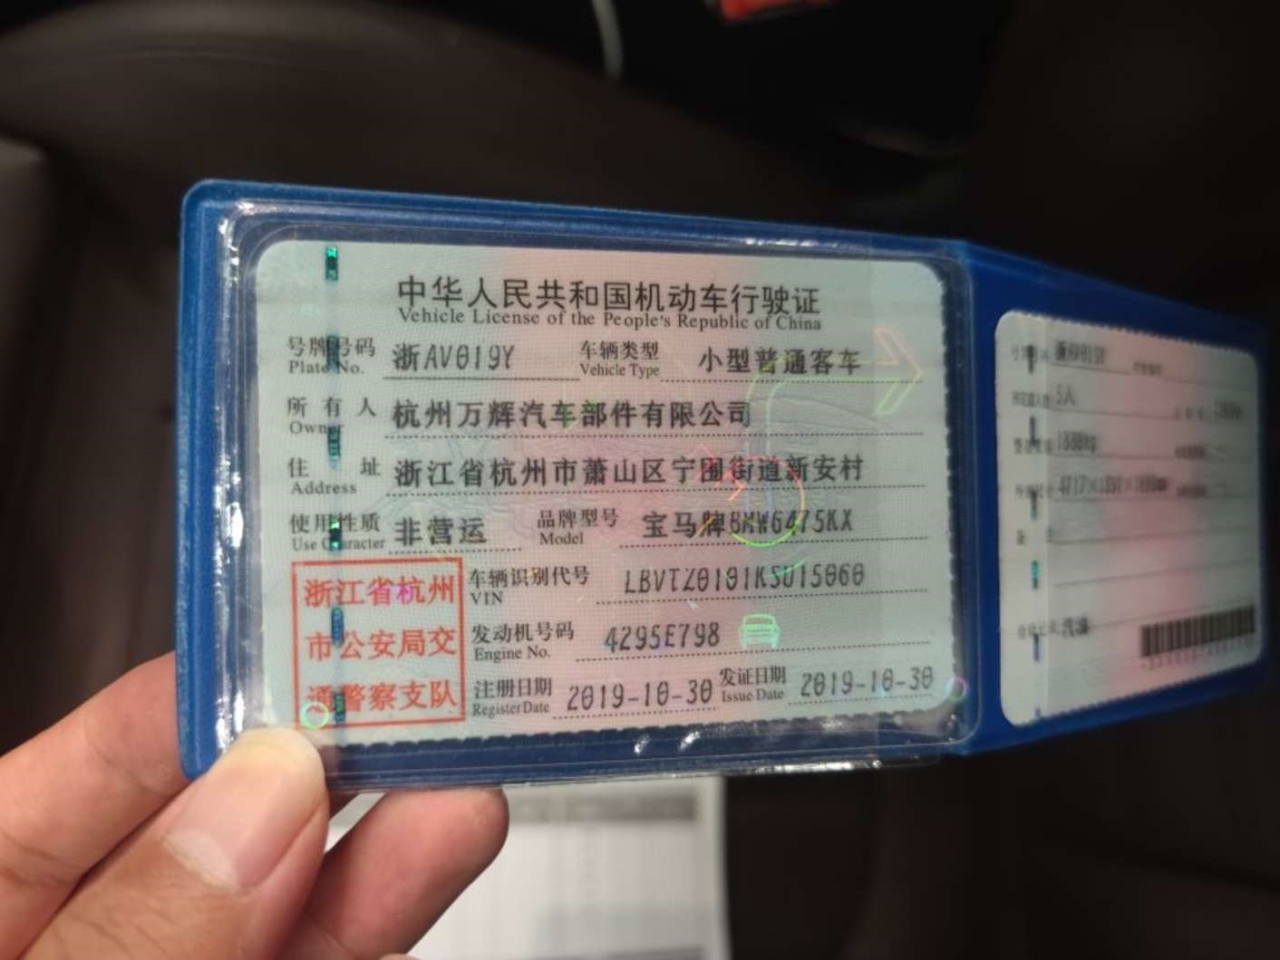 中华人民共和国机动车行驶证
Vehicle License of the People's Republic of China
号牌号码 浙AV019Y 车辆类型 小型普通客车
Plate No. Vehicle Type
所有人 杭州万辉汽车部件有限公司
Owner
住址 浙江省杭州市萧山区宁围街道新安村
Address
使用性质 非营运 品牌型号 宝马牌BMW6475KX
Use Character Model
浙江省杭州
市公安局交
通警察支队
车辆识别代号 LBVTZ0101KSU15060
VIN
发动机号码 4295E798
Engine No.
注册日期 2019-10-30 发证日期 2019-10-30
Register Date Issue Date
5人
汽油